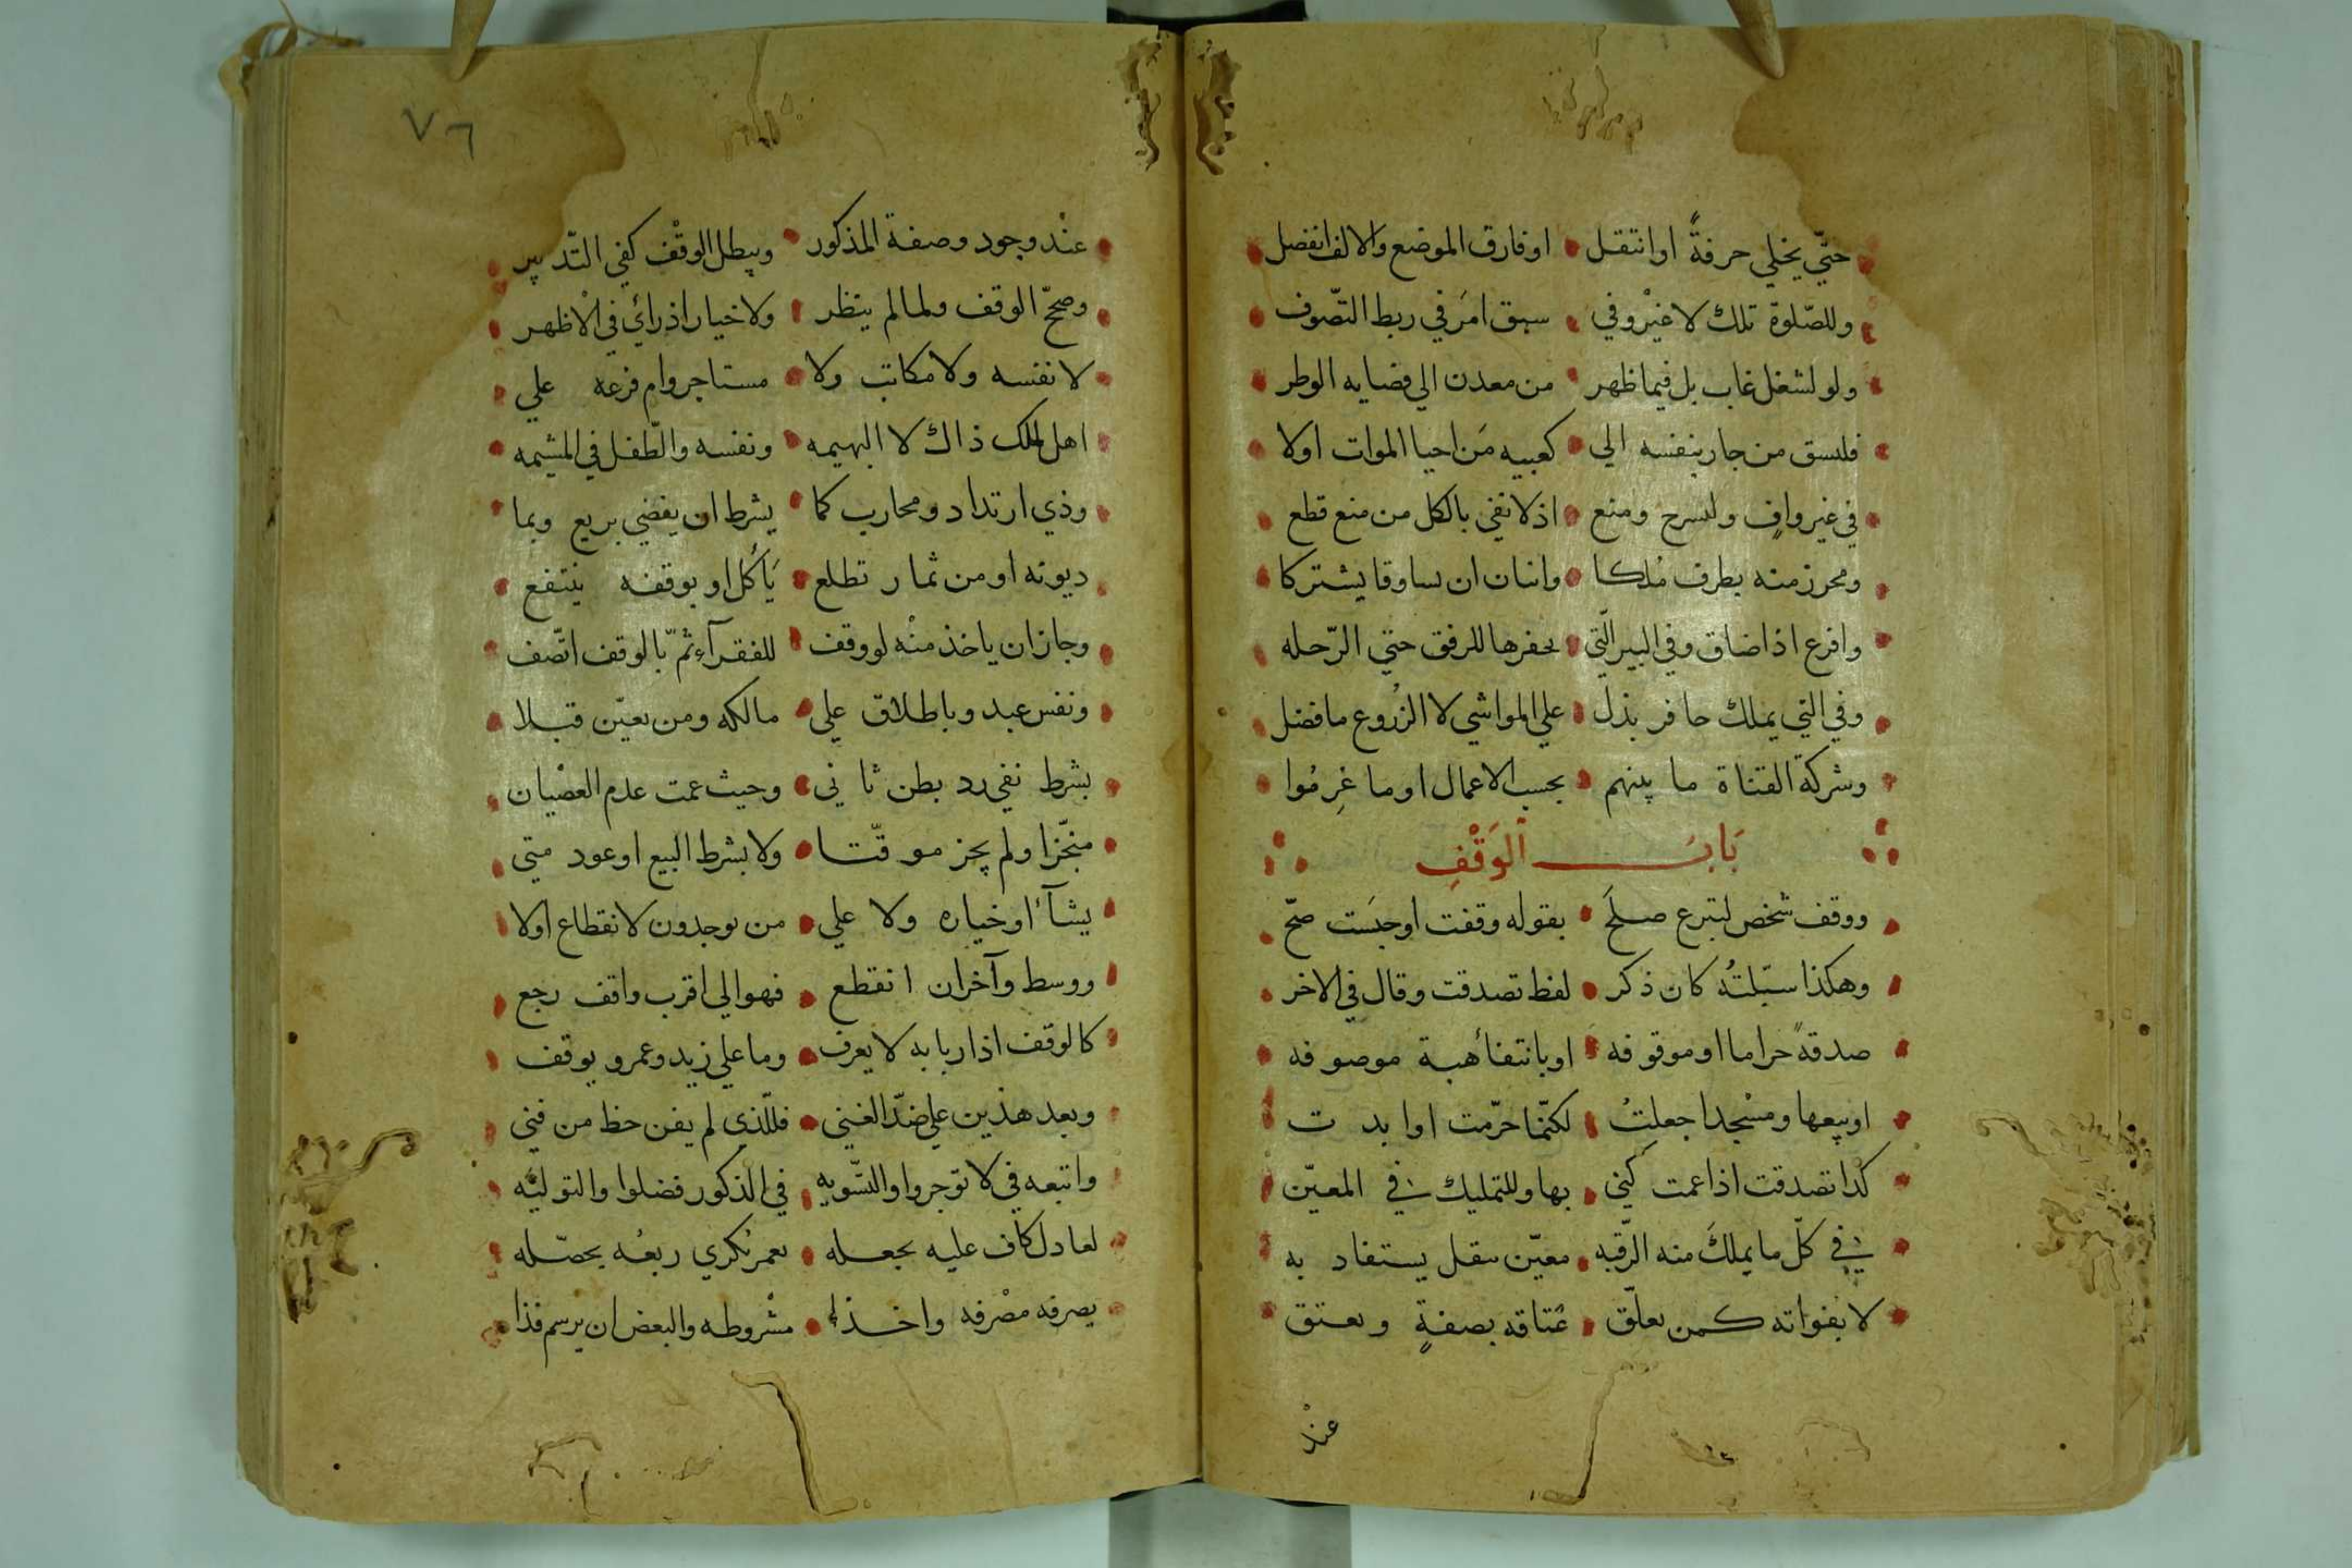 حتّي يخلي حرفةً او انتقل اوفارق الموضع والالف انفصل
وللصّلوة تلك لا غيْر وفي سبق امَر في ربط التّصوف
ولو لشغل غاب بل فيما ظهر من معدن الي قضايه الوطر
فلسق من جار بنفسه الي كعبيه مَن احيا الموات اولا
في غير وافٍ ولسرح ومنع اذ لا تفي بالكل من منع قطع
ومحرز منه بطرف مُلكا واثنان ان تساوقا يشتركا
واقرع اذا ضاق وفي البير الّتي بحفرها للرفق حتي الرّحله
وفي التي يملك حافر بذل علي المواشي لا الزُروع ما فضل
وشركة القناة ما بينهم بحسب الاعمال او ما غرِمُوا
بَابَ الوَقْفِ
ووقف شخص لتبرع صلحَ بقوله وقفت او حبَست صحّ
وهكذا سبّلتُه كان ذكر لفظ تصدقت وقال في الاخر
صدقةً حراما او موقوفه او بانتفاء هبة موصوفه
او بيعها ومسْجدا جعلتُ لكنّما حرّمت او ابدت
كذا تصدقت اذا عمت كني بها وللتمليك في المعيّن
في كلّ ما يملكَ منه الرّقبه معيّن ينقل يستفاد به
لا بفواته كمن يعلّق عتاقه بصفةٍ ويعتق
عنْد
٧٦
عنْد وجود وصفة المذكور ويبطل الوقْف كفي التّدبير
وصحّ الوقف ولما لم ينظر ولا خيار اذ رائ في الْاظهر
لا نفسه ولا مكاتب ولا مستاجر وام فرعه علي
اهل الملك ذاك لا البهيمه ونفسه والطّفل في المشيمه
وذي ارتداد ومحارب كما يشرط ان يقضي بريع وبما
ديونه او من ثمار تطلع يَأكُل او بوقفه ينتفع
وجاز ان ياخذ منْه لو وقف للفقرآء ثمّ بالوقف اتّصف
ونفس عبد وباطلاق علي مالكه ومن يعيّن قبلا
بشرط نفي رد بطن ثاني وحيث عمت عدم العصْيان
منجّزا ولم يجز موقّتا ولا بشرط البيع او عود متي
يشآء او خياره ولا علي من يوجدون لانقطاع اولا
ووسط وآخر ان انقطع فهو الي اقرب واقف رجع
كالوقف اذ اربابه لا يعرف وما علي زيد وعمرو يوقف
وبعد هذين علي ضدّ الغني فللّذي لم يفن حظ من فني
واتبعه في لا توجروا والتّسويه في الذكور فضلوا والتوليه
لعادل كاف عليه بجعله يعمر يُكري ريعُه يحصّله
يصرفه مصْرفه واخذا مشْروطه والبعض ان يرسم فذا